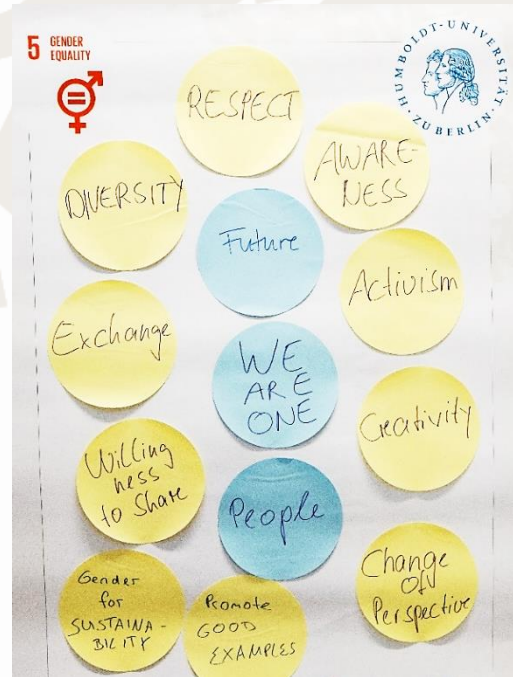 5 GENDER
EQUALITY
HUMBOLDT-UNIVERSITÄT
ZU BERLIN
RESPECT
AWARE-
NESS
DIVERSITY
Future
Activism
Exchange
WE
ARE
ONE
Creativity
Willing
ness
to Share
People
Change
of
Perspective
Gender
for
SUSTAINA-
BILITY
Promote
GOOD
EXAMPLES